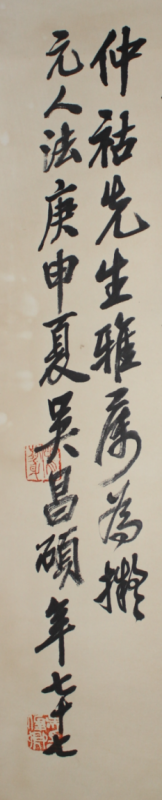 仲祜先生雅属为擬
元人法庚申夏吴昌碩年七十七